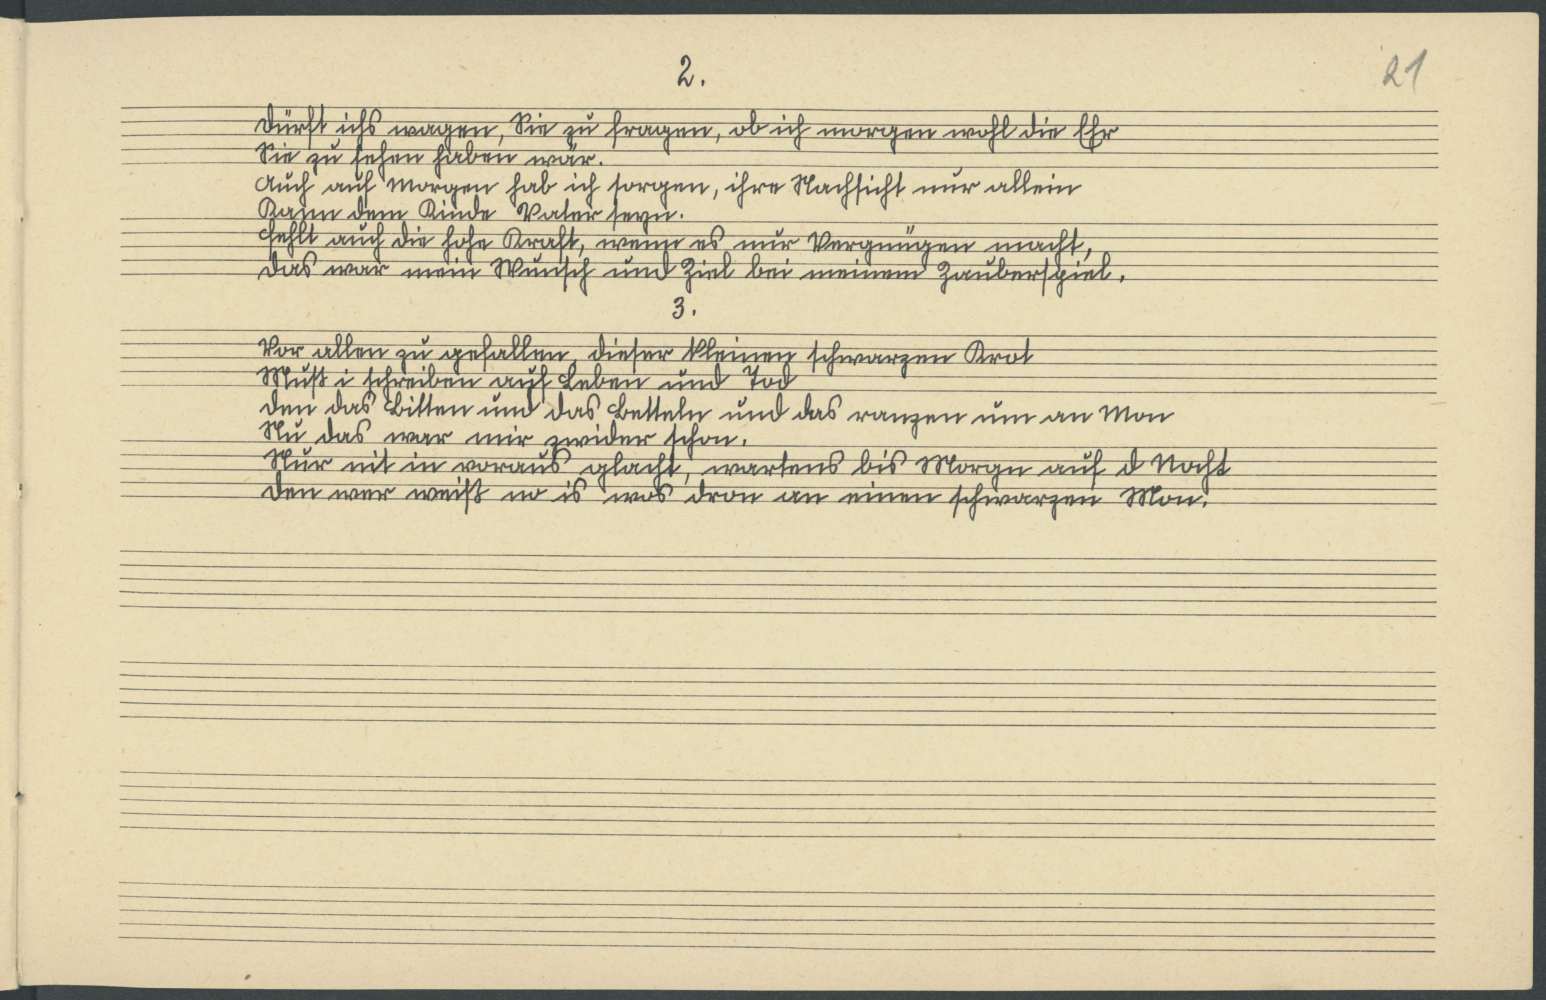 21
2.
Dürft ichs wagen, Sie zu fragen, ob ich morgen wohl die Ehr
Sie zu sehen haben wär.
Auch auf Morgen hab ich sorgen, ihre Nachsicht nur allein
Kann dem Kinde Vater seyn.
Fehlt auch die hohe Kraft, wenn es nur Vergnügen macht,
Das war mein Wunsch und Ziel bei meinem Zauberspiel.
3.
Vor allen zu gefallen, dieser kleinen schwarzen Krot
Mußt i schreiben auf Leben und Tod
Den das Bitten und das Betteln und das ranzen um an Mon
Nu das war mir zwider schon.
Nur nit in voraus glacht, wartens bis Morgn auf d Nocht
Den wer weiß no is wos dron an einen schwarzen Mon.